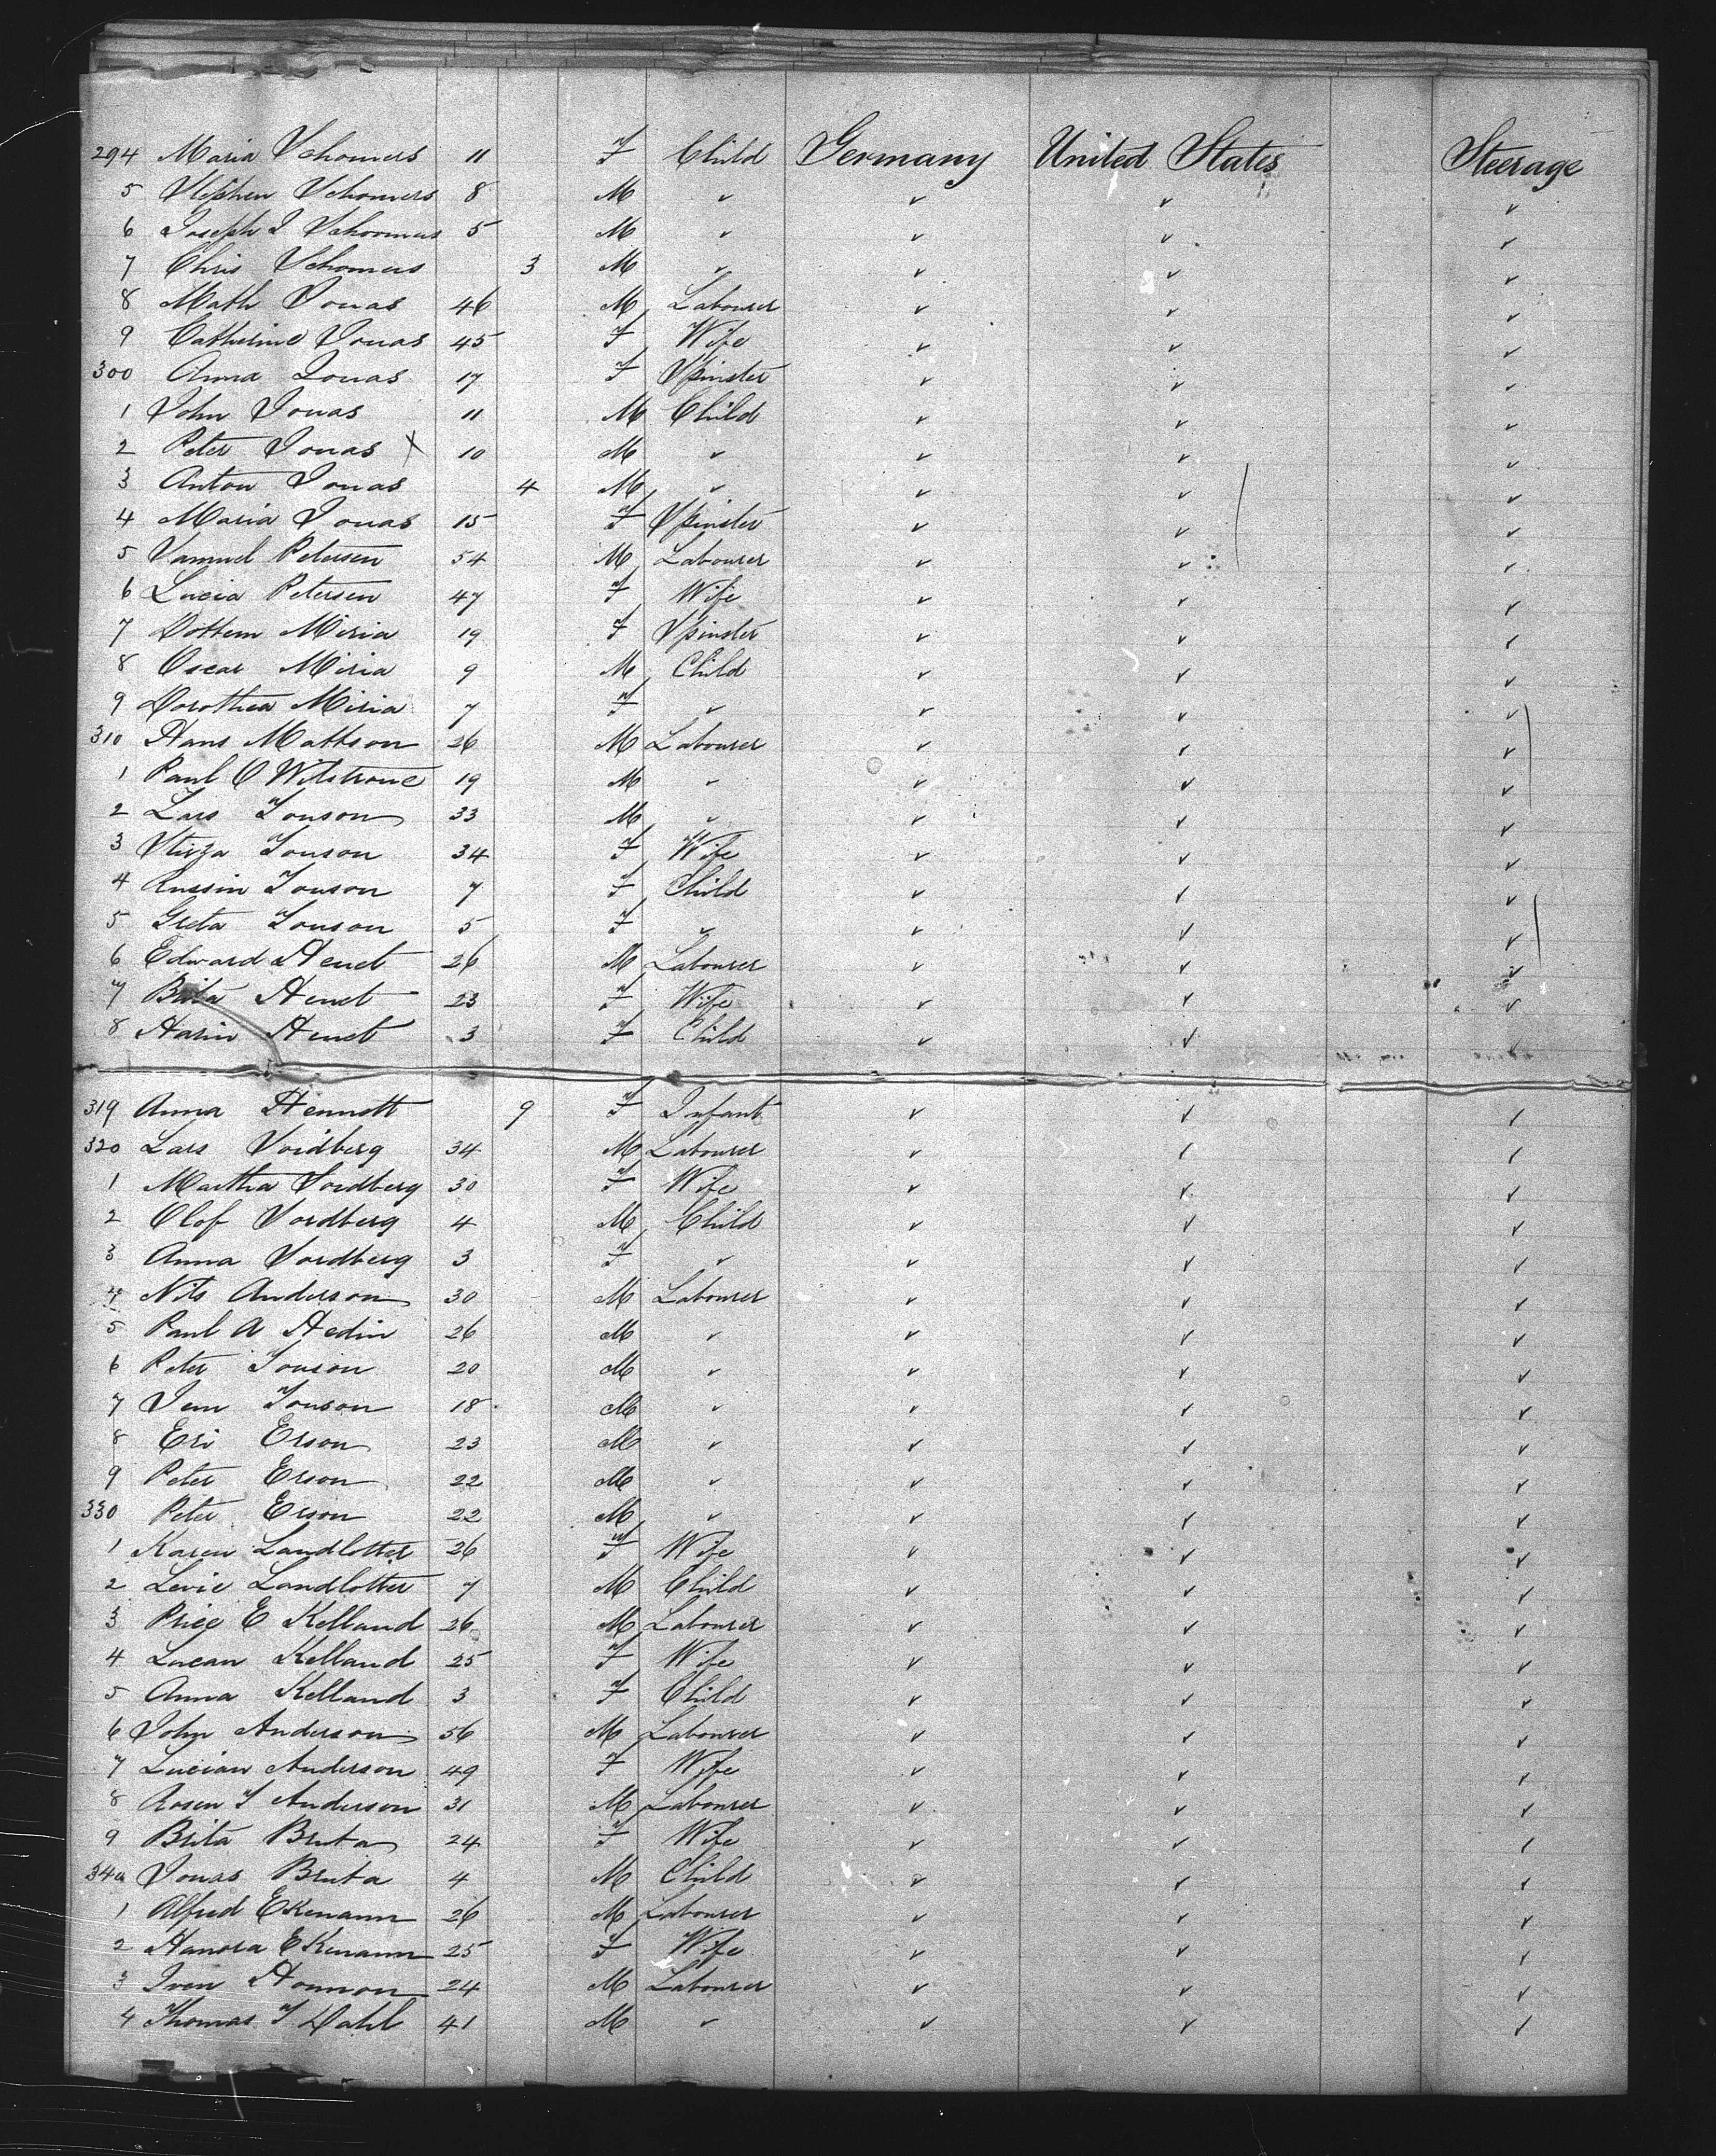 294 Maria Schomers 11 F Child Germany United States Steerage
5 Stephen Schomers 8 M " " " "
6 Joseph I Schoomers 5 M " " " "
7 Chris Schomers 3 M " " " "
8 Math Jonas 46 M Labourer " " "
9 Catherine Jonas 45 F Wife " " "
300 Anna Jonas 17 F Spinster " " "
1 John Jonas 11 M Child " " "
2 Peter Jonas X 10 M " " " "
3 Anton Jonas 4 M " " " "
4 Maria Jonas 15 F Spinster " " "
5 Samuel Petersen 54 M Labourer " " "
6 Lucia Petersen 47 F Wife " " "
7 Dottem Miria 19 F Spinster " " "
8 Oscar Miria 9 M Child " " "
9 Dorothea Miria 7 F " " " "
310 Hans Mattson 26 M Labourer " " "
1 Paul O Wilstrone 19 M " " " "
2 Lars Jonson 33 M " " " "
3 Jonson 34 F Wife " " "
4 Jonson 7 F Child " " "
5 Greta Jonson 5 F " " " "
6 Edward Henet 26 M Labourer " " "
7 Brita Henet 23 F Wife " " "
8 Harin Henet 3 F Child " "
319 Anna Hennett 9 F Infant " " "
320 Lars Soidberg 34 M Labourer " " "
1 Martha Soidberg 30 F Wife " " "
2 Olof Sordberg 4 M Child " " "
3 Anna Sordberg 3 F " " " "
4 Nils Anderson 30 M Labourer " " "
5 Paul A Hedin 26 M " " " "
6 Peter Jonson 20 M " " " "
7 Jonson 18 M " " " "
8 Eri Erson 23 M " " " "
9 Peter Erson 22 M " " " "
330 Peter Erson 22 M " " " "
1 Karen Landlotter 26 F Wife " " "
2 Levie Landlotter 7 M Child " " "
3 Price E Kelland 26 M Labourer " " "
4 Lucan Kelland 25 F Wife " " "
5 Anna Kelland 3 F Child " " "
6 John Anderson 56 M Labourer " " "
7 Lucian Anderson 49 F Wife " " "
8 Rosen T Anderson 31 M Labourer " " "
9 Brita Bruta 24 F Wife " " "
340 Jonas Bruta 4 M Child " " "
1 Alfred Ekenann 26 M Labourer " " "
2 Hanora Ekenann 25 F Wife " " "
3 Iven Honnon 24 M Labourer " " "
4 Thomas T Dahl 41 M " " " "